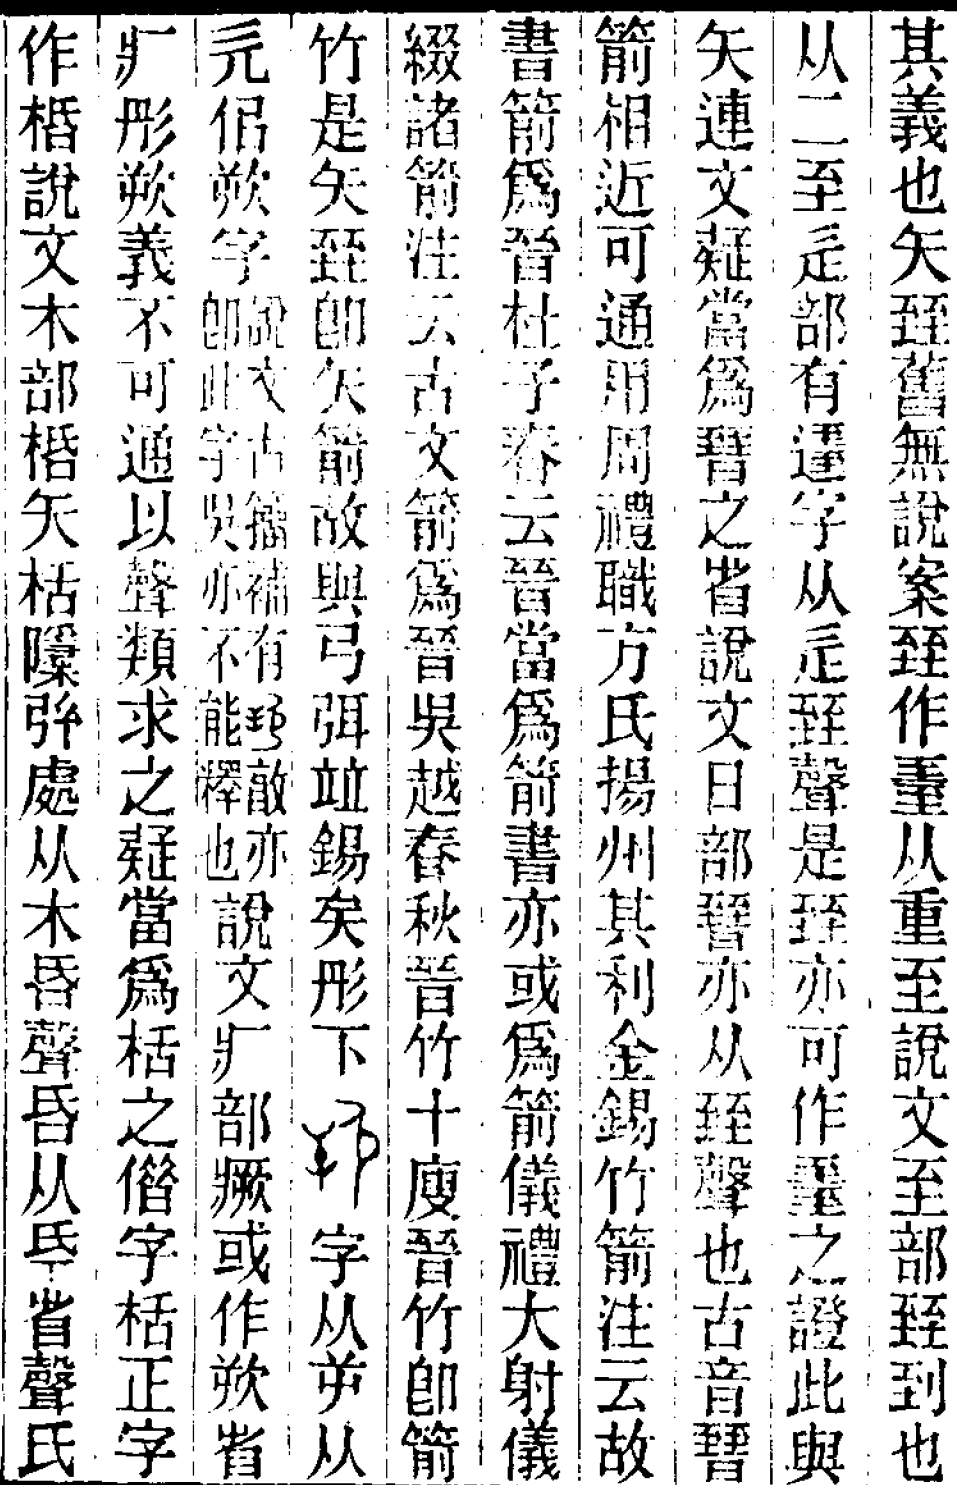 其義也矢臸舊無說案臸作臺从重至說文至部臸到也
从二至辵部有遷字从辵臸聲是臸亦可作臺之證此與
矢連文疑當為晉之省說文日部晉亦从臸聲也古音晉
箭相近可通用周禮職方氏揚州其利金錫竹箭注云故
書箭爲晉杜子春云晉當爲箭書亦或爲箭儀禮大射儀
綴諸箭注云古文箭爲晉吳越春秋晉竹十廋晉竹卽箭
竹是矢臸卽矢箭故與弓弭竝錫矣彤下字从屰从
元侶欮字說文古籀補有敢亦卽此字吳亦不能釋也說文疒部瘚或作欮省
疒彤欮義不可通以聲類求之疑當爲栝之僭字栝正字
作桰說文木部桰矢栝隱弦處从木昏聲昏从氐省聲氏